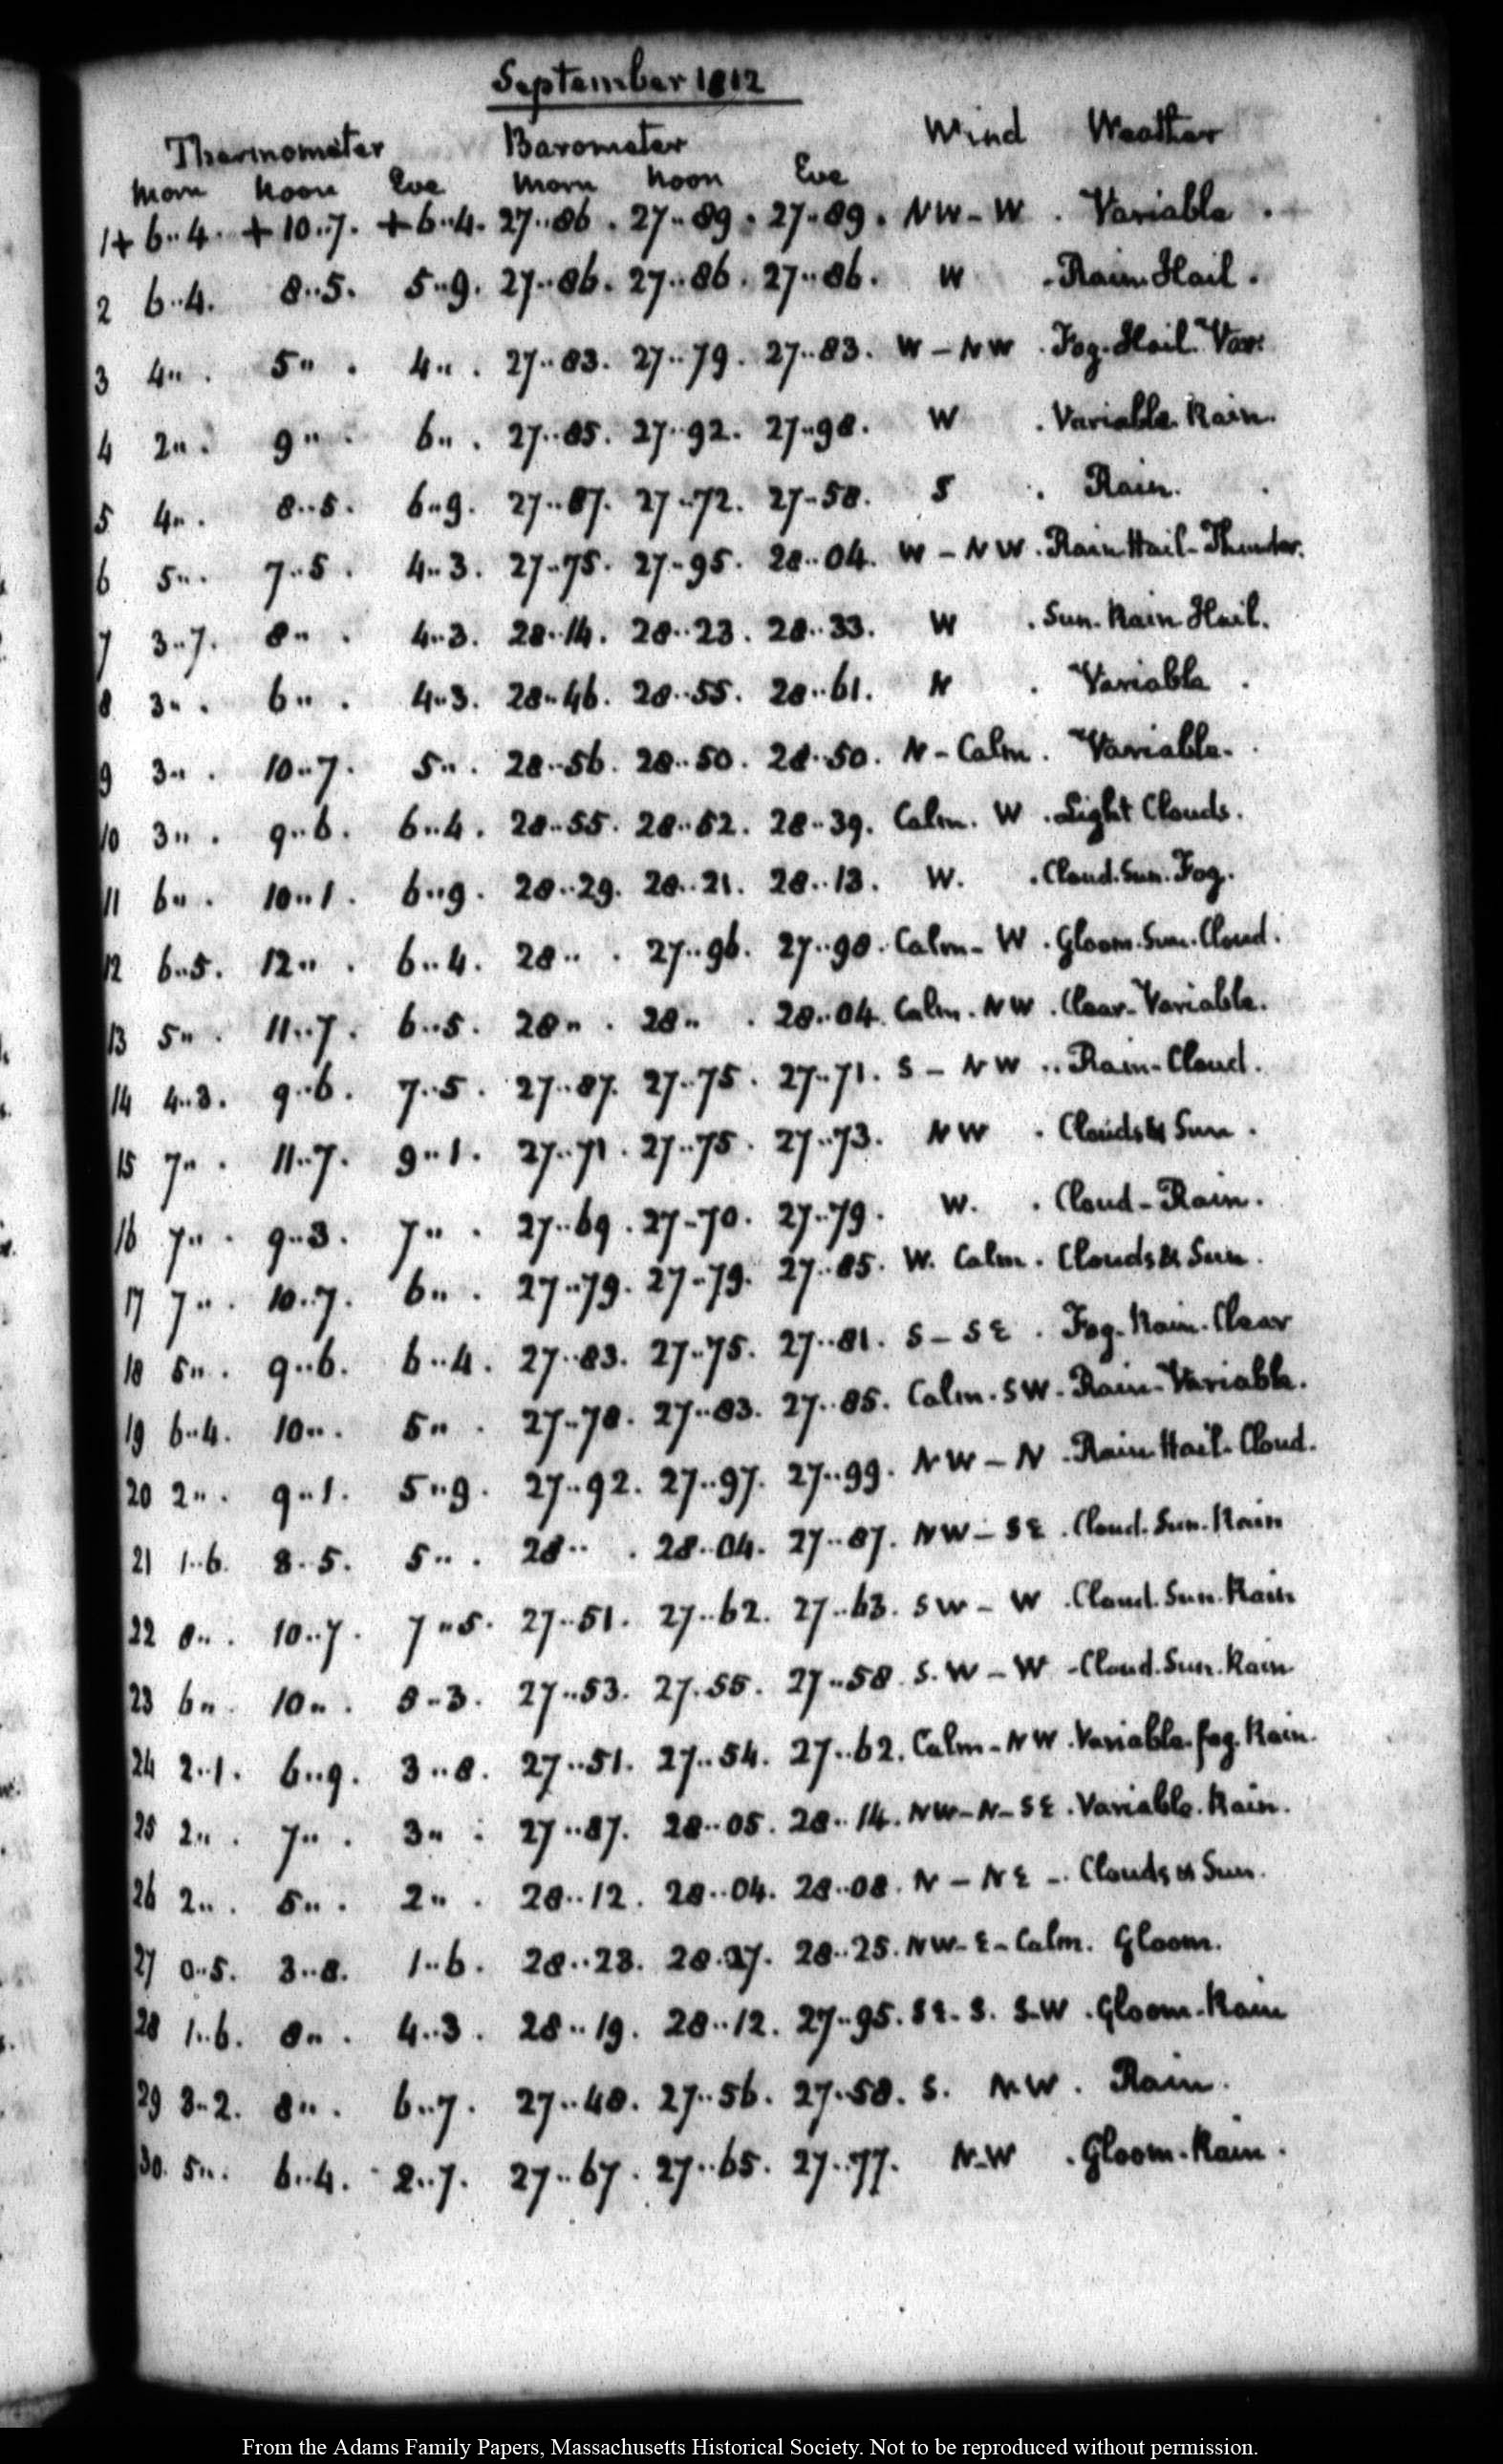 September 1812
Thermometer Barometer Wind Weather
Morn Noon Eve Morn Noon Eve
1 + 6..4. + 10..7. + 6..4. 27..86. 27..89. 27..89. NW - W. Variable.
2 6..4. 8..5. 5..9. 27..86. 27..86. 27..86. W. Rain. Hail.
3 4.. . 5.. . 4.. . 27..83. 27..79. 27..83. W - NW. Fog. Hail. Var:
4 2.. . 9.. . 6.. . 27..85. 27..92. 27..98. W. Variable. Rain.
5 4.. . 8..5. 6..9. 27..87. 27..72. 27..58. S. Rain.
6 5.. . 7..5. 4..3. 27..75. 27..95. 28..04. W - NW. Rain Hail - Thunder.
7 3..7. 8.. . 4..3. 28..14. 28..23. 28..33. W. Sun. Rain Hail.
8 3.. . 6.. . 4..3. 28..46. 28..55. 28..61. N. Variable.
9 3.. . 10..7. 5.. . 28..56. 28..50. 28..50. N - Calm. Variable.
10 3.. . 9..6. 6..4. 28..55. 28..52. 28..39. Calm. W. Light Clouds.
11 6.. . 10..1. 6..9. 28..29. 28..21. 28..13. W. Cloud. Sun. Fog.
12 6..5. 12.. . 6..4. 28.. . 27..96. 27..98. Calm - W. Gloom. Sun. Cloud.
13 5.. . 11..7. 6..5. 28.. . 28.. . 28..04. Calm. NW. Clear - Variable.
14 4..3. 9..6. 7..5. 27..87. 27..75. 27..71. S - NW.. Rain - Cloud.
15 7.. . 11..7. 9..1. 27..71. 27..75. 27..73. NW. Clouds & Sun.
16 7.. . 9..3. 7.. . 27..69. 27..70. 27..79. W. Cloud - Rain.
17 7.. . 10..7. 6.. . 27..79. 27..79. 27..85. W. Calm. Clouds & Sun.
18 5.. . 9..6. 6..4. 27..83. 27..75. 27..81. S - SE. Fog. Rain. Clear
19 6..4. 10.. . 5.. . 27..78. 27..83. 27..85. Calm. SW. Rain - Variable.
20 2.. . 9..1. 5..9. 27..92. 27..97. 27..99. NW - N. Rain Hail. Cloud.
21 1..6. 8..5. 5.. . 28.. . 28..04. 27..87. NW - SE. Cloud. Sun. Rain
22 8.. . 10..7. 7..5. 27..51. 27..62. 27..63. SW - W. Cloud. Sun. Rain
23 6.. . 10.. . 5..3. 27..53. 27..55. 27..58. S.W - W - Cloud. Sun. Rain
24 2..1. 6..9. 3..8. 27..51. 27..54. 27..62. Calm - NW. Variable. fog. Rain.
25 2.. . 7.. . 3.. . 27..87. 28..05. 28..14. NW - N - SE. Variable. Rain.
26 2.. . 5.. . 2.. . 28..12. 28..04. 28..08. N - NE -. Clouds & Sun.
27 0..5. 3..8. 1..6. 28..23. 28..27. 28..25. NW - E - Calm. Gloom.
28 1..6. 8.. . 4..3. 28..19. 28..12. 27..95. SE - S. S-W. Gloom - Rain
29 3..2. 8.. . 6..7. 27..48. 27..56. 27..58. S. N.W. Rain.
30. 5.. . 6..4. 2..7. 27..67. 27..65. 27..77. N-W. Gloom - Rain.
From the Adams Family Papers, Massachusetts Historical Society. Not to be reproduced without permission.